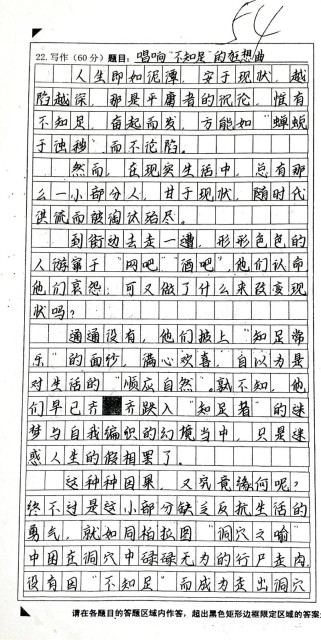 54
22.写作(60分)题目:唱响“不知足”的狂想曲
人生即如泥潭,安于现状,越
陷越深,那是平庸者的沉沦,惟有
不知足,奋起而发,方能如“蝉蜕
于浊秽”而不论陷。
然而,在现实生活中,总有那
么一小部分人,甘于现状,随时代
洪流而被淘汰殆尽。
到街边去走一遭,形形色色的
人游窜于“网吧”“酒吧”,他们认命
他们哀怨,可又做了什么来改变现
状吗?
通通没有,他们披上“知足常
乐”的面纱,满心欢喜,自以为是
对生活的“顺应自然”。孰不知,他
们早已齐齐跌入“知足者”的迷
梦与自我编织的幻境当中,只是迷
惑人生的假相罢了。
这种种因果,又究竟缘何呢?
终不过是这小部分缺乏反抗生活的
勇气,就如同柏拉图“洞穴之喻”
中困在洞穴中碌碌无为的行尸走肉,
没有因“不知足”而成为走出洞穴
请在各题目的答题区域内作答,超出黑色矩形边框限定区域的答案